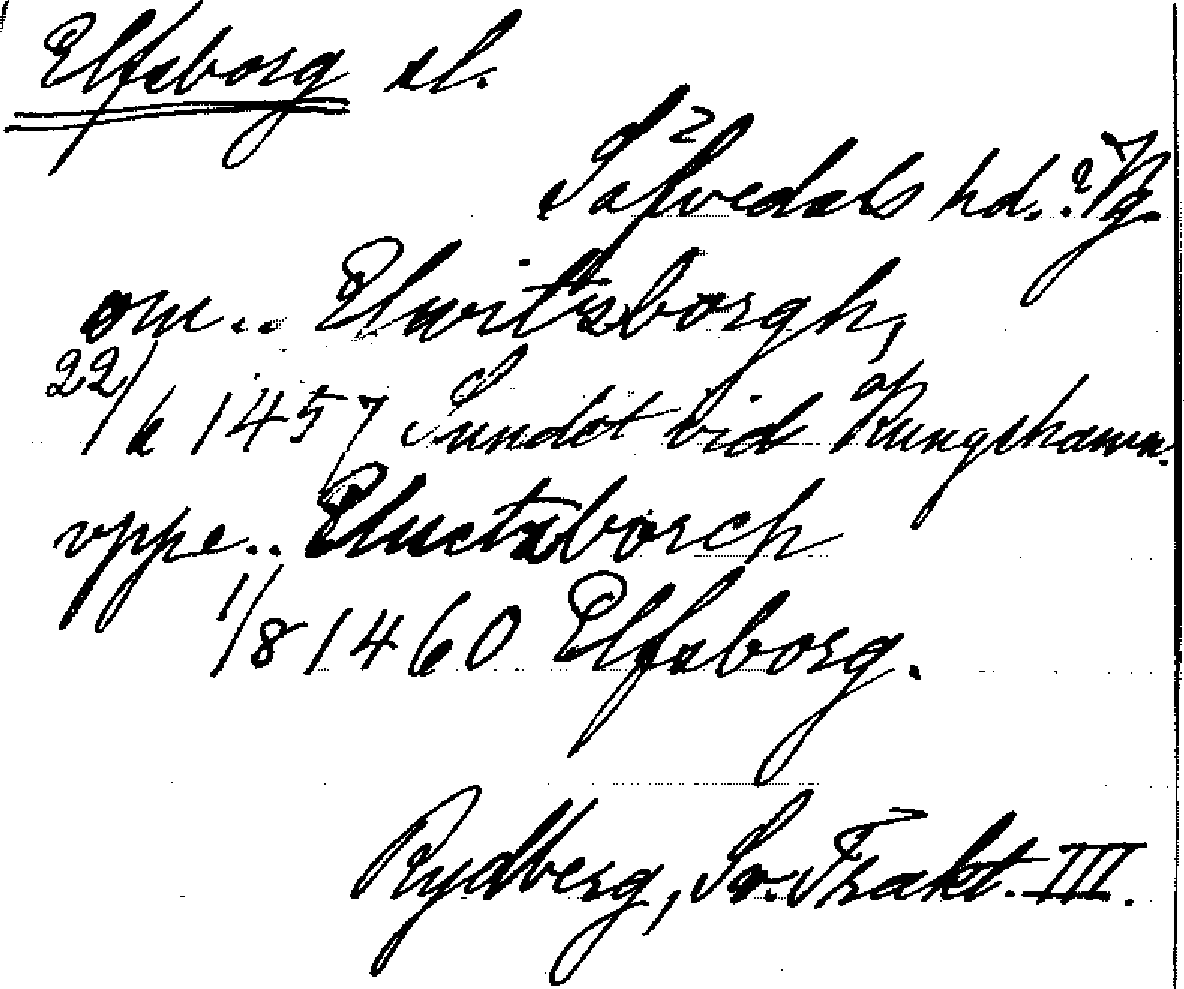 Elfsborg sl.
Säfvedals hd.? Vg.
om .. Elwitzborgh,
22/6 1457 Sundet vid Kungshamn.
vppe .. Eluetzborch
1/8 1460 Elfsborg.
Rydberg, Sv. Trakt. III.